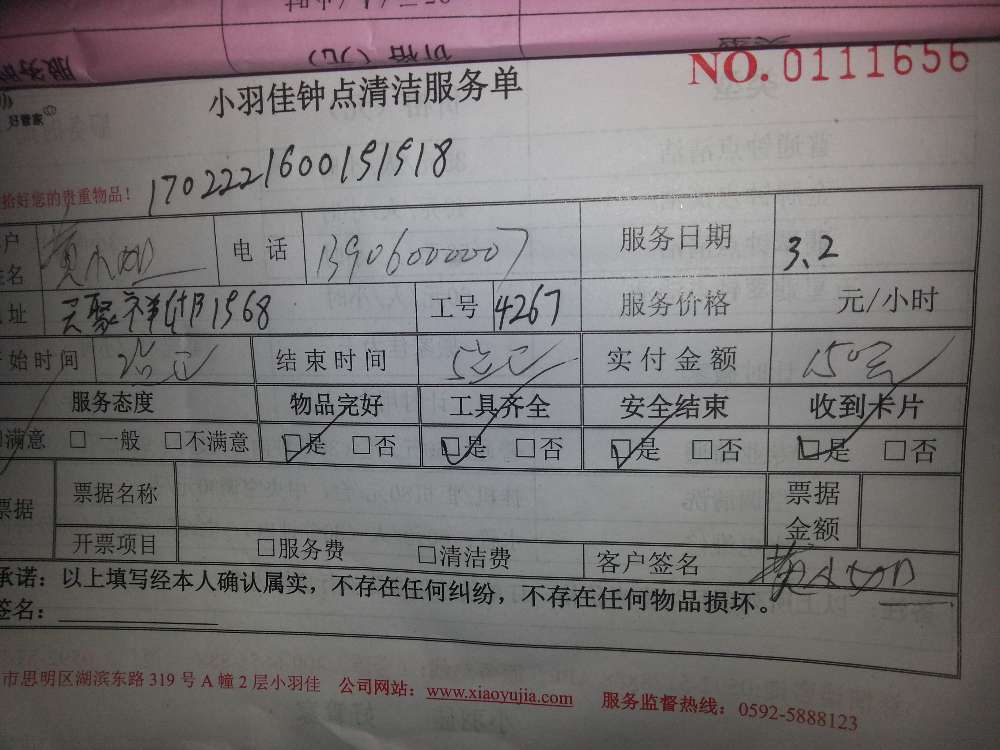 价格(元)
NO. 0111656
小羽佳钟点清洁服务单
好管家
1702221600151518
拾好您的贵重物品!
电话 13906000007 服务日期 3.2
址 1568 工号 4267 服务价格 元/小时
始时间 结束时间 实付金额 150元
服务态度 物品完好 工具齐全 安全结束 收到卡片
满意 □ 一般 □不满意 □是 □否 □是 □否 □是 □否 □是 □否
票据 票据名称 票据金额
开票项目 □服务费 □清洁费 客户签名
承诺:以上填写经本人确认属实,不存在任何纠纷,不存在任何物品损坏。
签名:
市思明区湖滨东路 319 号 A 幢 2 层小羽佳 公司网站:www.xiaoyujia.com 服务监督热线:0592-5888123